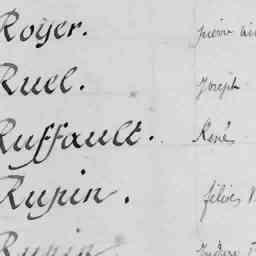 Royer. pierre
Ruel. Joseph
Ruffault. René
Rupin. félix
Rupin